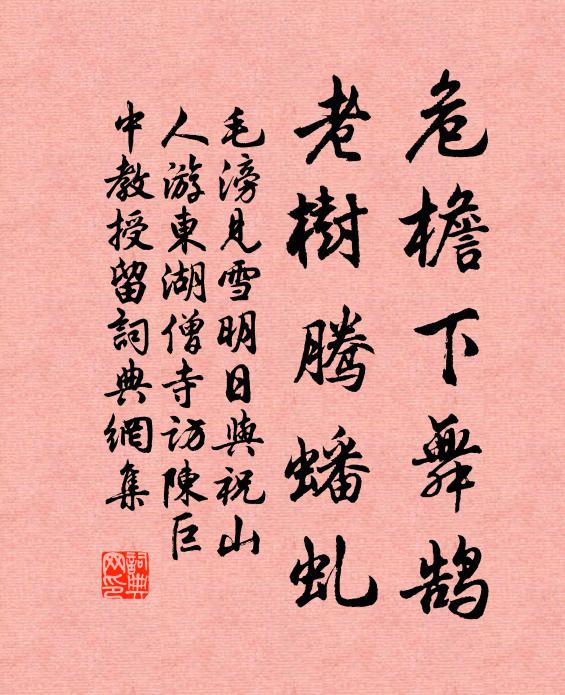 危檐下舞鹄
老樹騰蟠虬
毛滂見雪明日與祝山
人游東湖僧寺訪陳巨
中教授留詞典網集
詞典網印